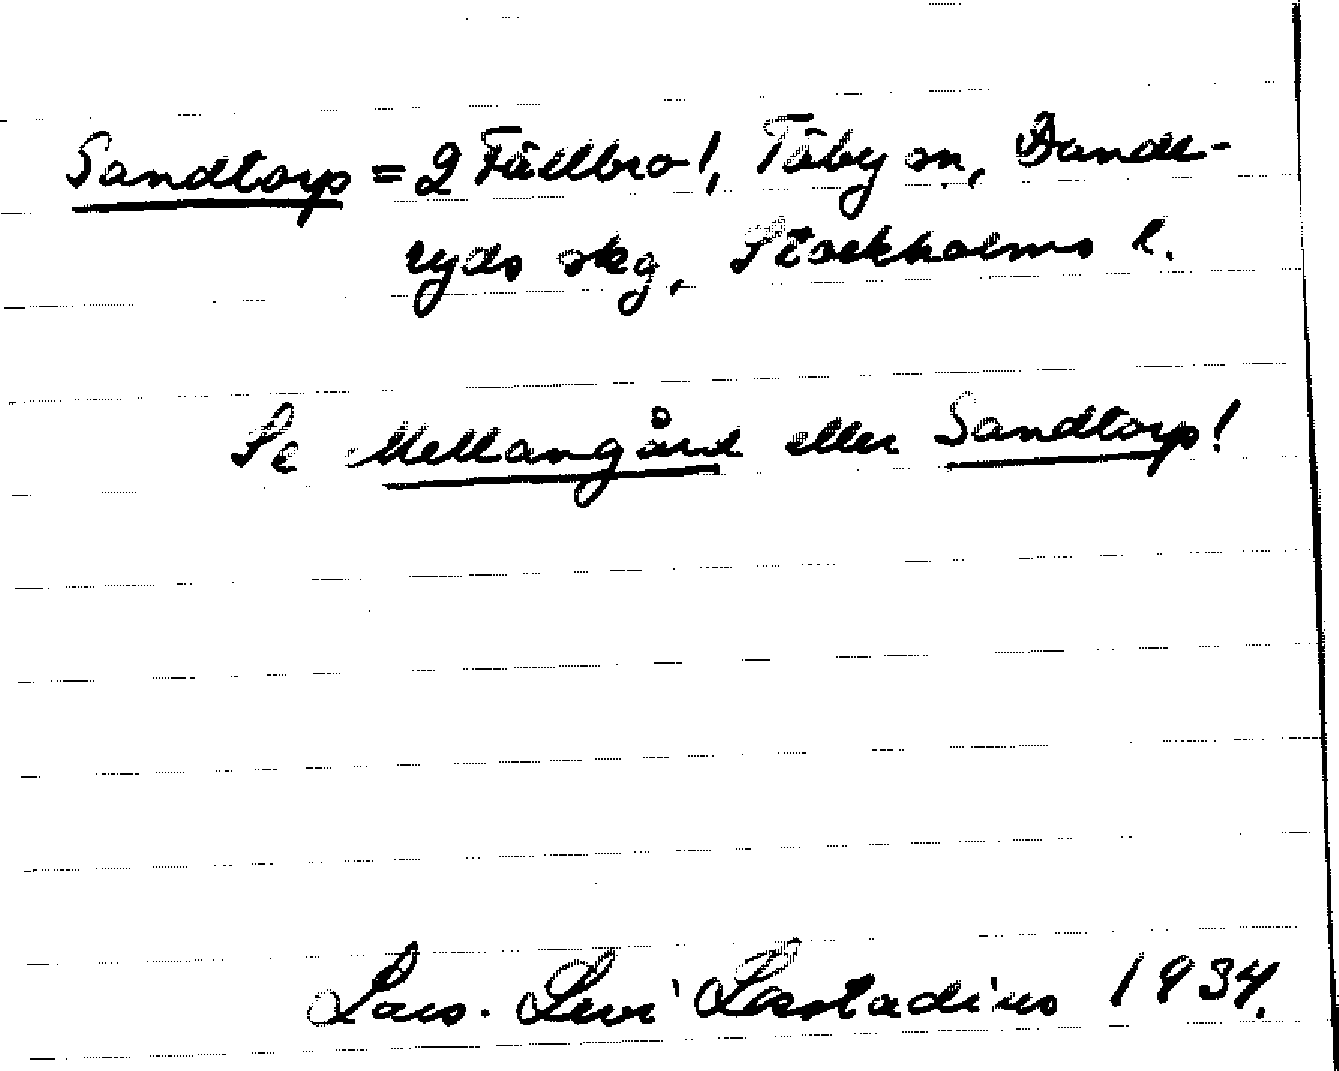 Sandtorp = 2 Fällbro!, Täby sn, Dande-
ryds skg, Stockholms l.
Se Mellangård eller Sandtorp!
Lars-Levi Læstadius 1934.